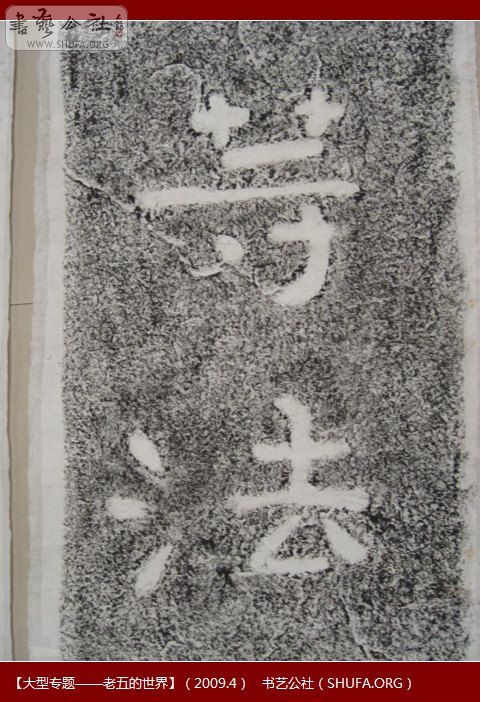 書藝公社
WWW.SHUFA.ORG
等
法
【大型专题——老五的世界】（2009.4） 书艺公社（SHUFA.ORG）